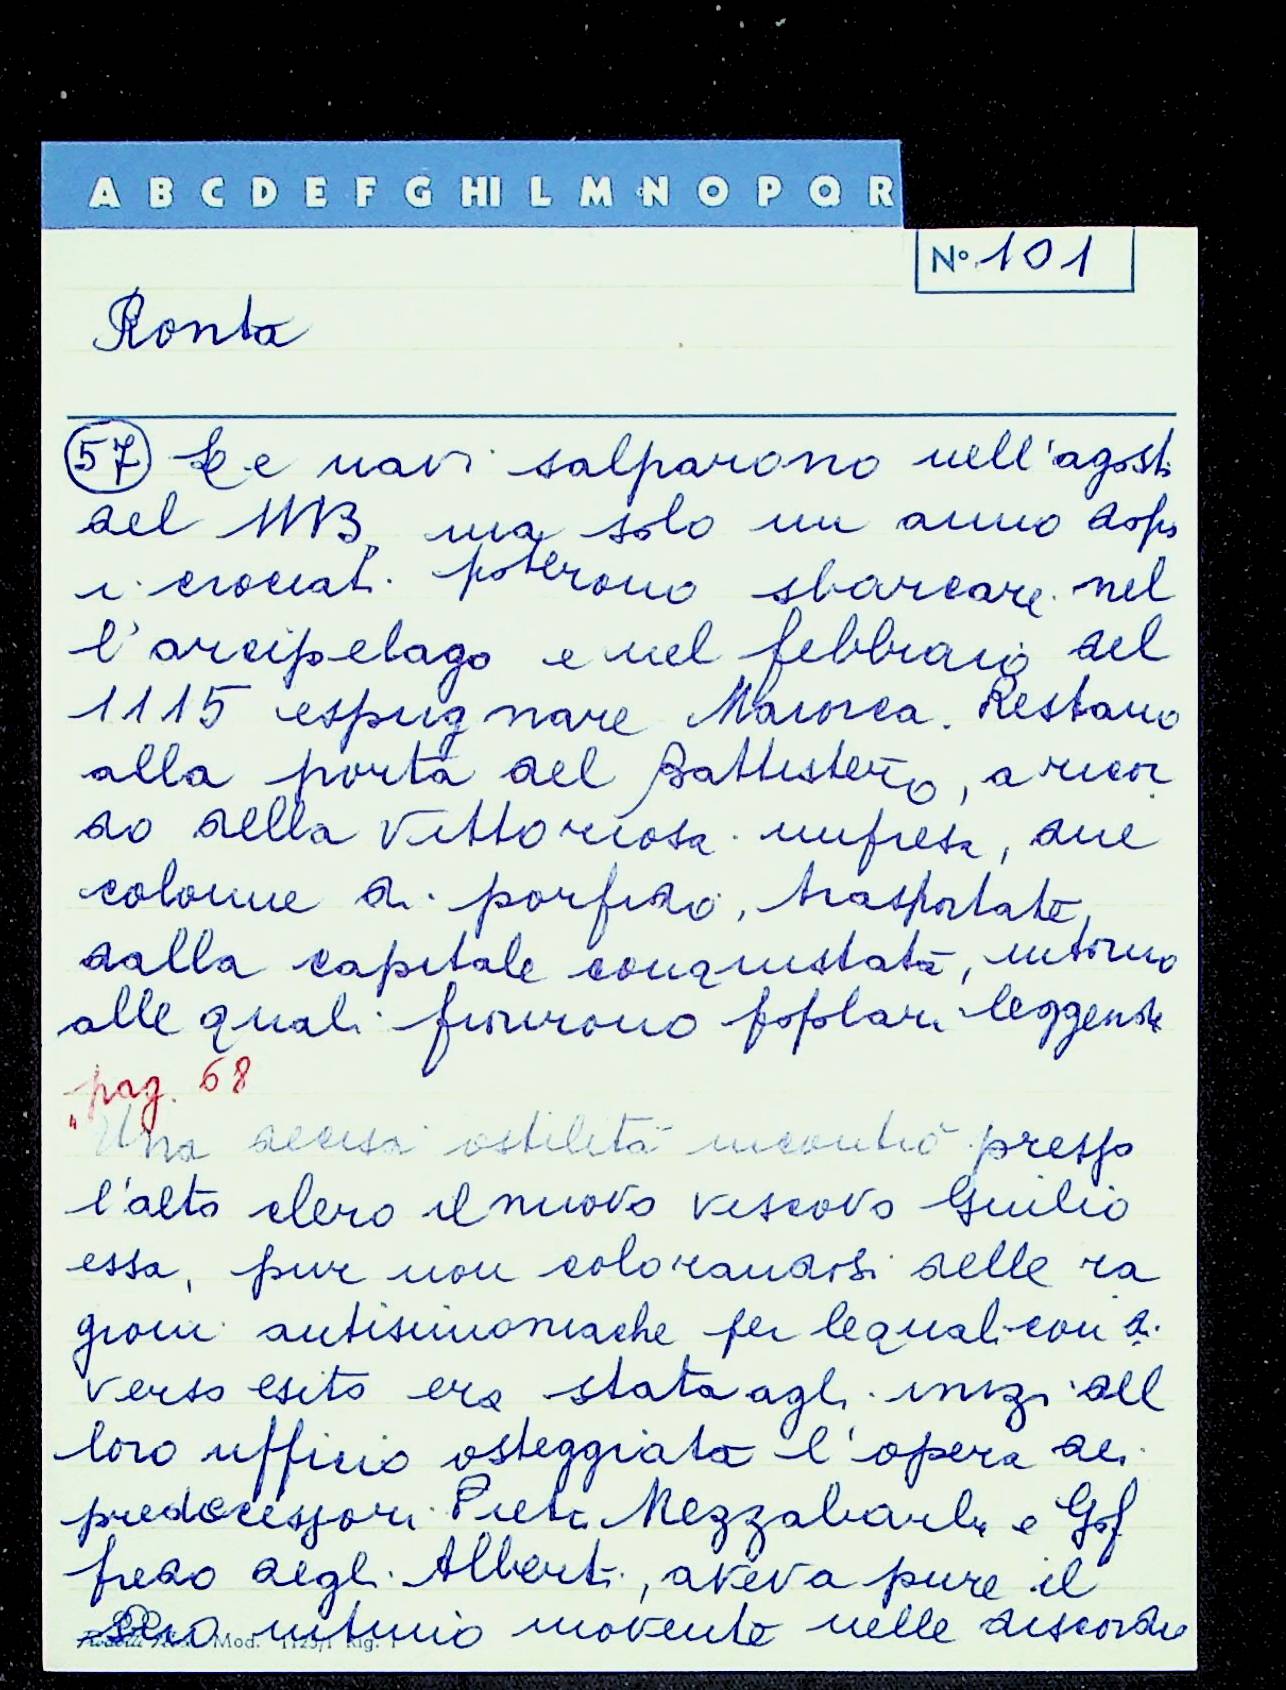 A B C D E F G HI L M N O P Q R
N° 101
Ronta
57 Le navi salparono nell'agosto
del 1113, ma solo un anno dopo
i crociati poterono sbarcare nel
l'arcipelago e nel febbraio del
1115 espugnare Maiorca. Restano
alla porta del Battistero, a ricor
do della vittoriosa impresa, due
colonne di porfido, trasportate,
dalla capitale conquistata, intorno
alle quali fiorirono popolari leggende
pag. 68
"Una accesa ostilità incontrò presso
l'alto clero il nuovo vescovo
essa, pur non colorandosi delle ra
gioni antisimoniache per le quali con di
verso esito era stata agli inizi del
loro ufficio osteggiata l'opera dei
predecessori Pietro Mezzabarba e Gof
fredo degli Alberti, aveva pure il
suo intimo movente nelle discordie
Mod. 1125/1 Rig.